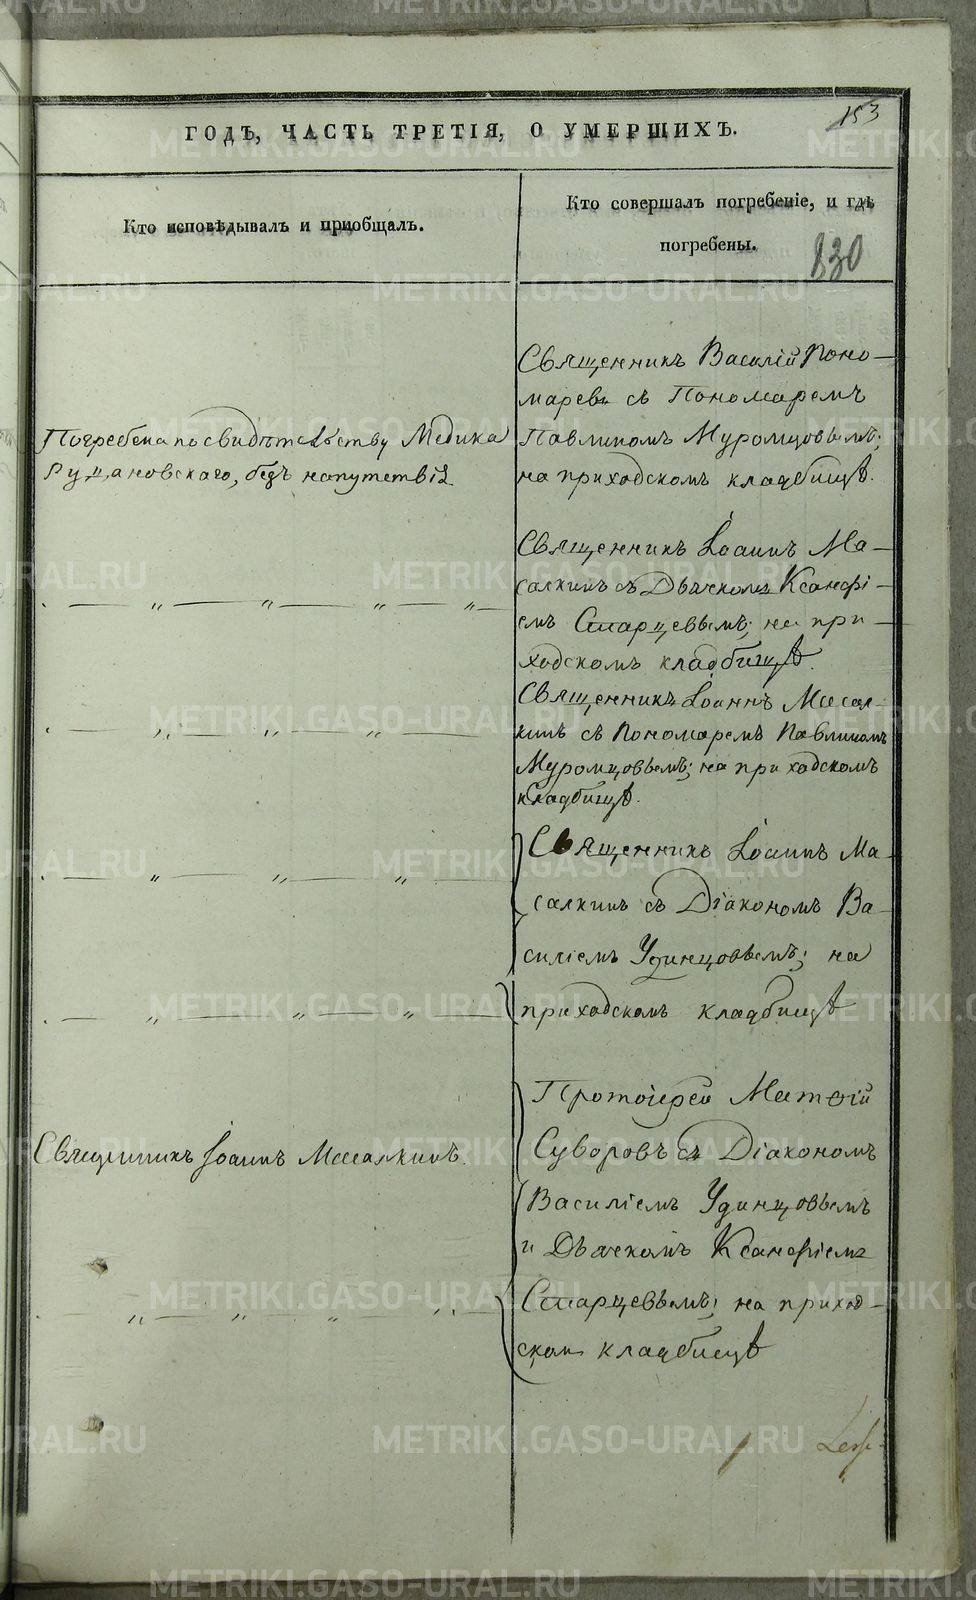 153
ГОДЪ, ЧАСТЬ ТРЕТІЯ, О УМЕРШИХЪ.
Кто исповѣдывалъ и пріобщалъ.
Кто совершалъ погребеніе, и гдѣ
погребены.
830
Погребена по свидѣтельству Медика
Рудановскаго, безъ напутствія
Священникъ Василій Поно-
маревъ съ Пономаремъ
Павлиномъ Муромцовымъ;
на приходскомъ кладбищѣ.
Священникъ Іоаннъ Ма-
салкинъ съ Дьячкомъ Ксанфі-
емъ Старцевымъ; на при-
ходскомъ кладбищѣ.
Священникъ Іоаннъ Масал-
кинъ съ Пономаремъ Павлиномъ
Муромцовымъ; на приходскомъ
кладбищѣ.
Священникъ Іоаннъ Ма-
салкинъ съ Діакономъ Ва-
силіемъ Удинцовымъ; на
приходскомъ кладбищѣ
Священникъ Іоаннъ Масалкинъ.
Протоіерей Матѳій
Суворовъ съ Діакономъ
Василіемъ Удинцовымъ
и Дьячкомъ Ксанфіемъ
Старцевымъ; на приход-
скомъ кладбищѣ
METRIKI.GASO-URAL.RU